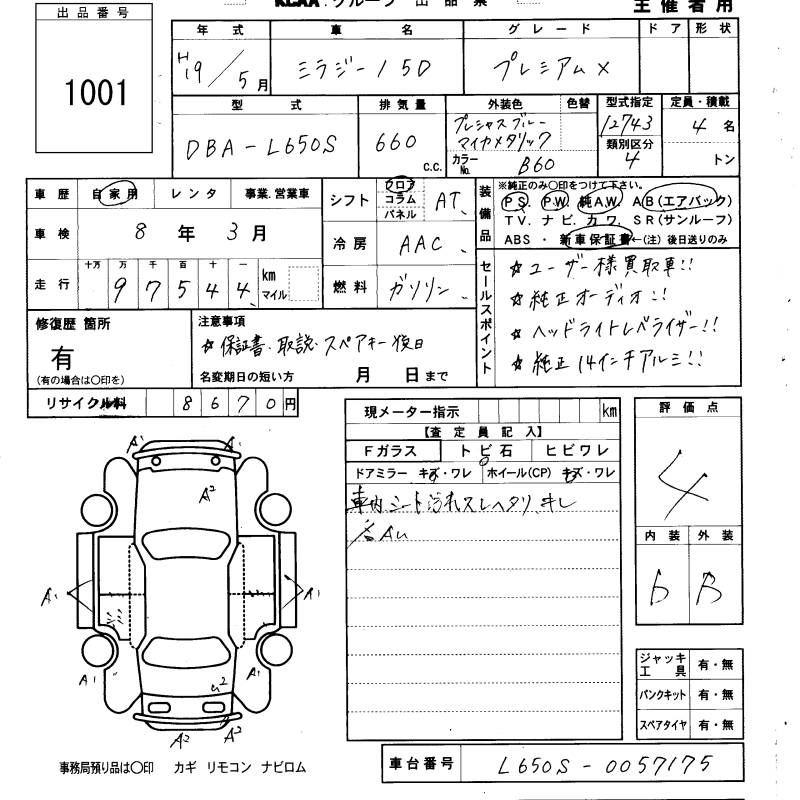 出品番号
1001
KCAA
主催者用
年式 車名 グレード ドア 形状
H19/5月 ミラジーノ50 プレミアムX
型式 排気量 外装色 色替 型式指定 定員・積載
DBA-L650S 660 c.c. プレシャスブルーマイカメタリック 12743 4名
カラーNo. B60 類別区分 4 トン
車歴 自家用 レンタ 事業.営業車
シフト フロア コラム パネル AT
車検 8年3月
冷房 AAC
走行 十万 万 千 百 十 一
97544 km マイル
燃料 ガソリン
装備品
※純正のみ○印をつけて下さい。
P S. P.W. 純A.W. A B(エアバック)
T V. ナ ビ. カ ワ. S R(サンルーフ)
ABS ・ 新車保証書 ←(注) 後日送りのみ
セールスポイント
☆ユーザー様買取車!!
☆純正オーディオ!!
☆ヘッドライトレベライザー!!
☆純正14インチアルミ!!
修復歴 箇所
有
(有の場合は○印を)
注意事項
☆保証書.取説.スペアキー後日
名変期日の短い方 月 日まで
リサイクル料 8670円
現メーター指示 km
【査定員記入】
Fガラス トビ石 ヒビワレ
ドアミラー キズ・ワレ ホイール(CP) キズ・ワレ
車内シート汚れスレヘタリ.キレ
各AU
評価点
4
内装 外装
b B
A1 A1
A2
A1 A1
ミミ
A1 A1
U2
A2 A2
ジャッキ工具 有・無
パンクキット 有・無
スペアタイヤ 有・無
事務局預り品は○印 カギ リモコン ナビロム
車台番号 L650S-0057175